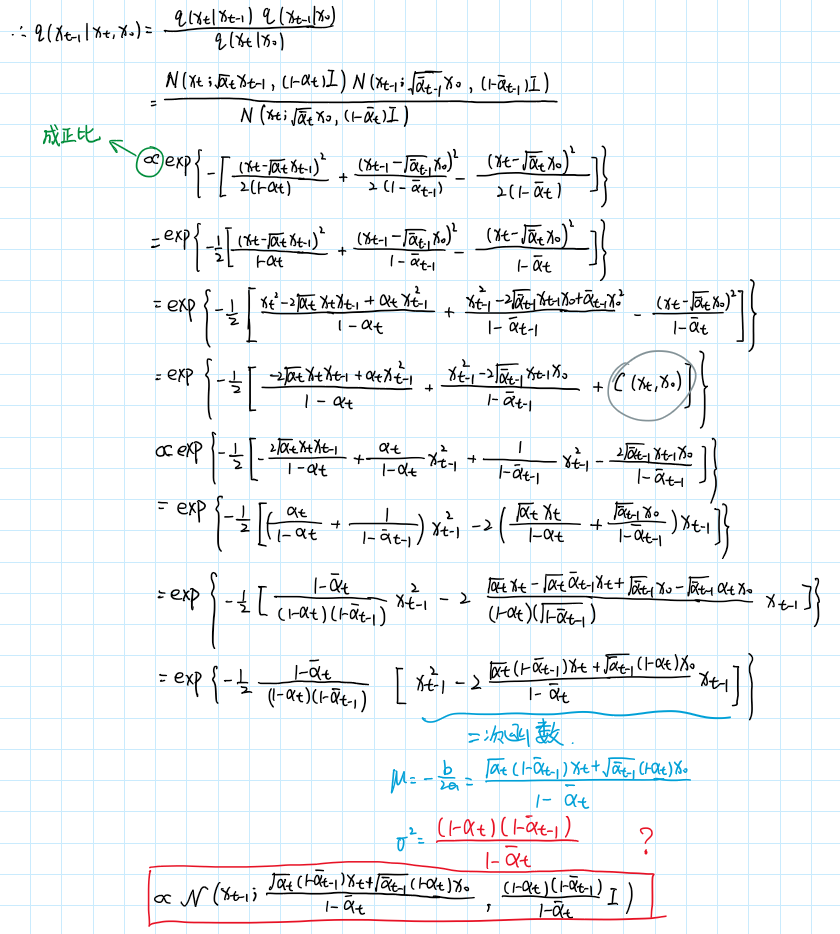 ∴ q(x_{t-1}|x_t, x_0) = \frac{q(x_t|x_{t-1}) q(x_{t-1}|x_0)}{q(x_t|x_0)}
= \frac{N(x_t; \sqrt{α_t}x_{t-1}, (1-α_t)I) N(x_{t-1}; \sqrt{\bar{α}_{t-1}}x_0, (1-\bar{α}_{t-1})I)}{N(x_t; \sqrt{\bar{α}_t}x_0, (1-\bar{α}_t)I)}
成正比
∝ exp{-[\frac{(x_t-\sqrt{α_t}x_{t-1})^2}{2(1-α_t)} + \frac{(x_{t-1}-\sqrt{\bar{α}_{t-1}}x_0)^2}{2(1-\bar{α}_{t-1})} - \frac{(x_t-\sqrt{\bar{α}_t}x_0)^2}{2(1-\bar{α}_t)}]}
= exp{-\frac{1}{2}[\frac{(x_t-\sqrt{α_t}x_{t-1})^2}{1-α_t} + \frac{(x_{t-1}-\sqrt{\bar{α}_{t-1}}x_0)^2}{1-\bar{α}_{t-1}} - \frac{(x_t-\sqrt{\bar{α}_t}x_0)^2}{1-\bar{α}_t}]}
= exp{-\frac{1}{2}[\frac{x_t^2-2\sqrt{α_t}x_tx_{t-1}+α_tx_{t-1}^2}{1-α_t} + \frac{x_{t-1}^2-2\sqrt{\bar{α}_{t-1}}x_{t-1}x_0+\bar{α}_{t-1}x_0^2}{1-\bar{α}_{t-1}} - \frac{(x_t-\sqrt{\bar{α}_t}x_0)^2}{1-\bar{α}_t}]}
= exp{-\frac{1}{2}[\frac{-2\sqrt{α_t}x_tx_{t-1}+α_tx_{t-1}^2}{1-α_t} + \frac{x_{t-1}^2-2\sqrt{\bar{α}_{t-1}}x_{t-1}x_0}{1-\bar{α}_{t-1}} + C(x_t, x_0)]}
∝ exp{-\frac{1}{2}[-\frac{2\sqrt{α_t}x_tx_{t-1}}{1-α_t} + \frac{α_t}{1-α_t}x_{t-1}^2 + \frac{1}{1-\bar{α}_{t-1}}x_{t-1}^2 - \frac{2\sqrt{\bar{α}_{t-1}}x_{t-1}x_0}{1-\bar{α}_{t-1}}]}
= exp{-\frac{1}{2}[(\frac{α_t}{1-α_t} + \frac{1}{1-\bar{α}_{t-1}})x_{t-1}^2 - 2(\frac{\sqrt{α_t}x_t}{1-α_t} + \frac{\sqrt{\bar{α}_{t-1}}x_0}{1-\bar{α}_{t-1}})x_{t-1}]}
= exp{-\frac{1}{2}[\frac{1-\bar{α}_t}{(1-α_t)(1-\bar{α}_{t-1})}x_{t-1}^2 - 2\frac{\sqrt{α_t}x_t-\sqrt{α_t}\bar{α}_{t-1}x_t+\sqrt{\bar{α}_{t-1}}x_0-\sqrt{\bar{α}_{t-1}}α_tx_0}{(1-α_t)(\sqrt{1-\bar{α}_{t-1}})}x_{t-1}]}
= exp{-\frac{1}{2}\frac{1-\bar{α}_t}{(1-α_t)(1-\bar{α}_{t-1})}[x_{t-1}^2 - 2\frac{\sqrt{α_t}(1-\bar{α}_{t-1})x_t+\sqrt{\bar{α}_{t-1}}(1-α_t)x_0}{1-\bar{α}_t}x_{t-1}]}
二次函数.
μ = -\frac{b}{2a} = \frac{\sqrt{α_t}(1-\bar{α}_{t-1})x_t+\sqrt{\bar{α}_{t-1}}(1-α_t)x_0}{1-\bar{α}_t}
σ^2 = \frac{(1-α_t)(1-\bar{α}_{t-1})}{1-\bar{α}_t} ?
∝ N(x_{t-1}; \frac{\sqrt{α_t}(1-\bar{α}_{t-1})x_t+\sqrt{\bar{α}_{t-1}}(1-α_t)x_0}{1-\bar{α}_t}, \frac{(1-α_t)(1-\bar{α}_{t-1})}{1-\bar{α}_t}I)